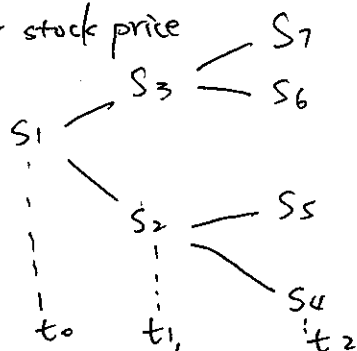 stock price
S7
S3
S6
S1
S2
S5
S4
t0 t1, t2